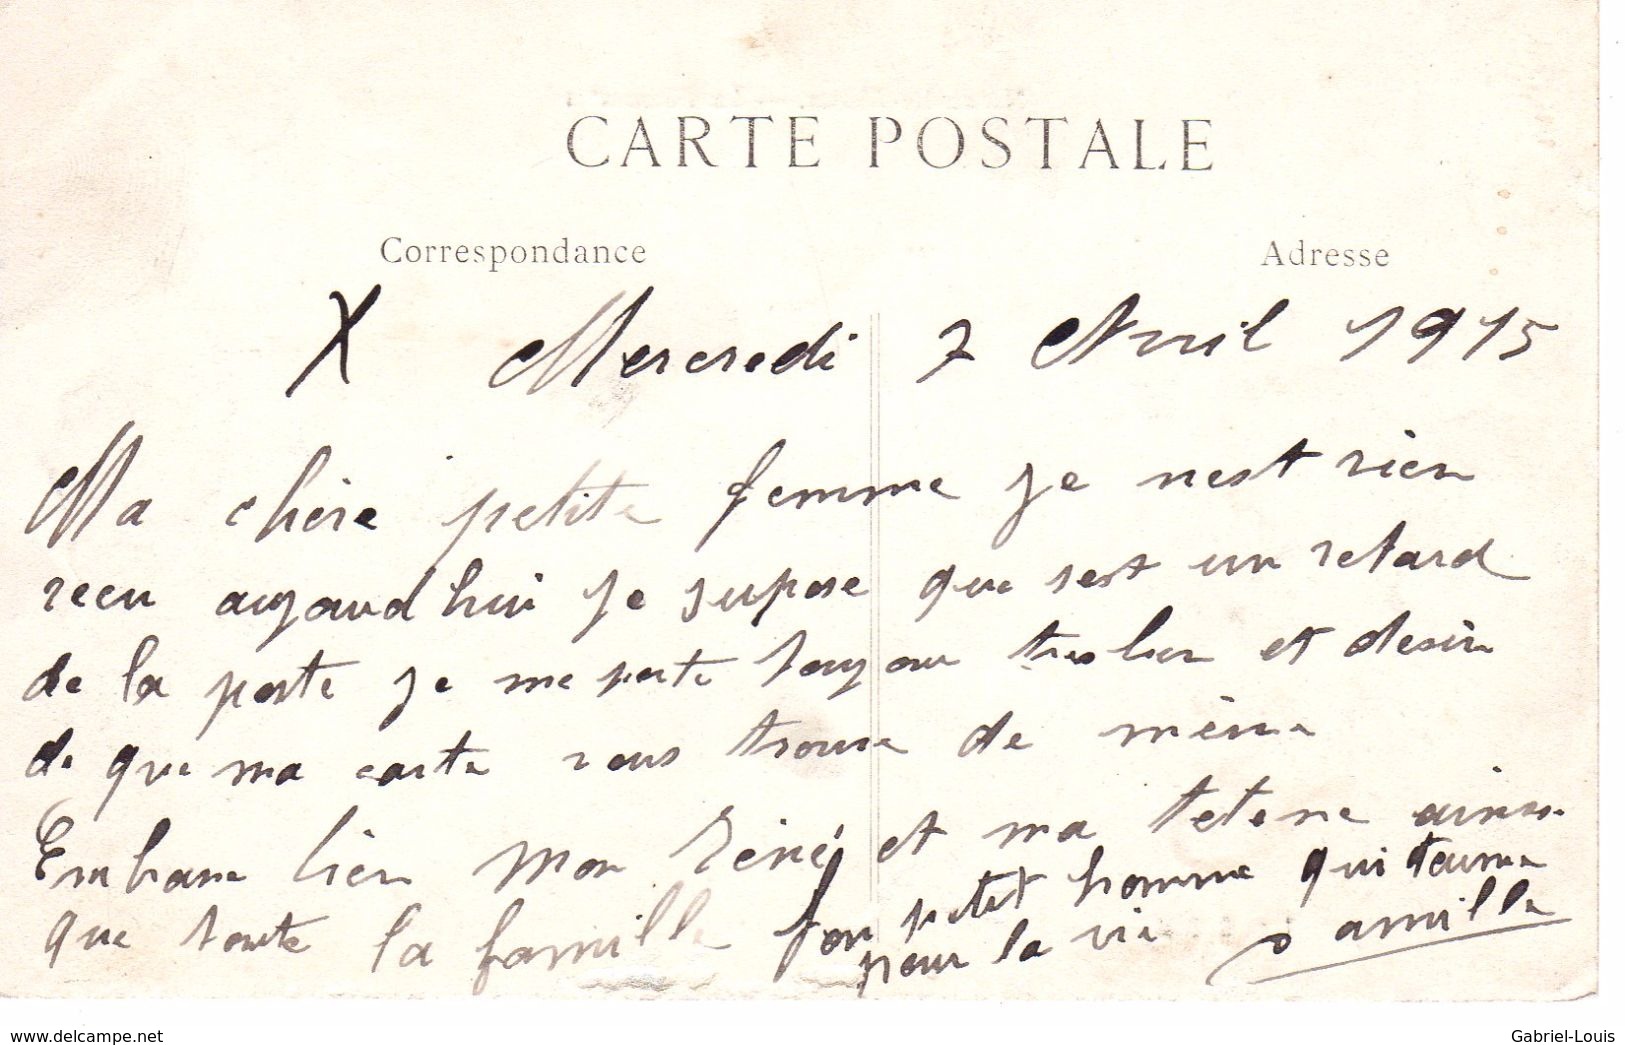 CARTE POSTALE
Correspondance
Adresse
X Mercredi 7 Avril 1915
Ma chère petite femme je nest rien
recu aujourd'hui je supose que sest un retard
de la poste je me porte toujour tres bien et desire
de que ma carte vous trouve de même
Embrasse bien mon Réné et ma tetene ainsi
que toute la famille Ton petit homme qui t'aime
pour la vie Camille
www.delcampe.net
Gabriel-Louis